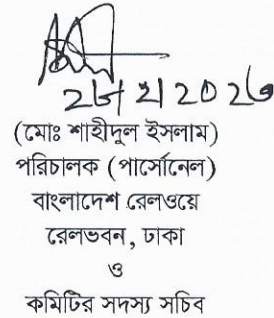 (মোঃ শাহীদুল ইসলাম)
পরিচালক (পার্সোনেল)
বাংলাদেশ রেলওয়ে
রেলভবন, ঢাকা
ও
কমিটির সদস্য সচিব